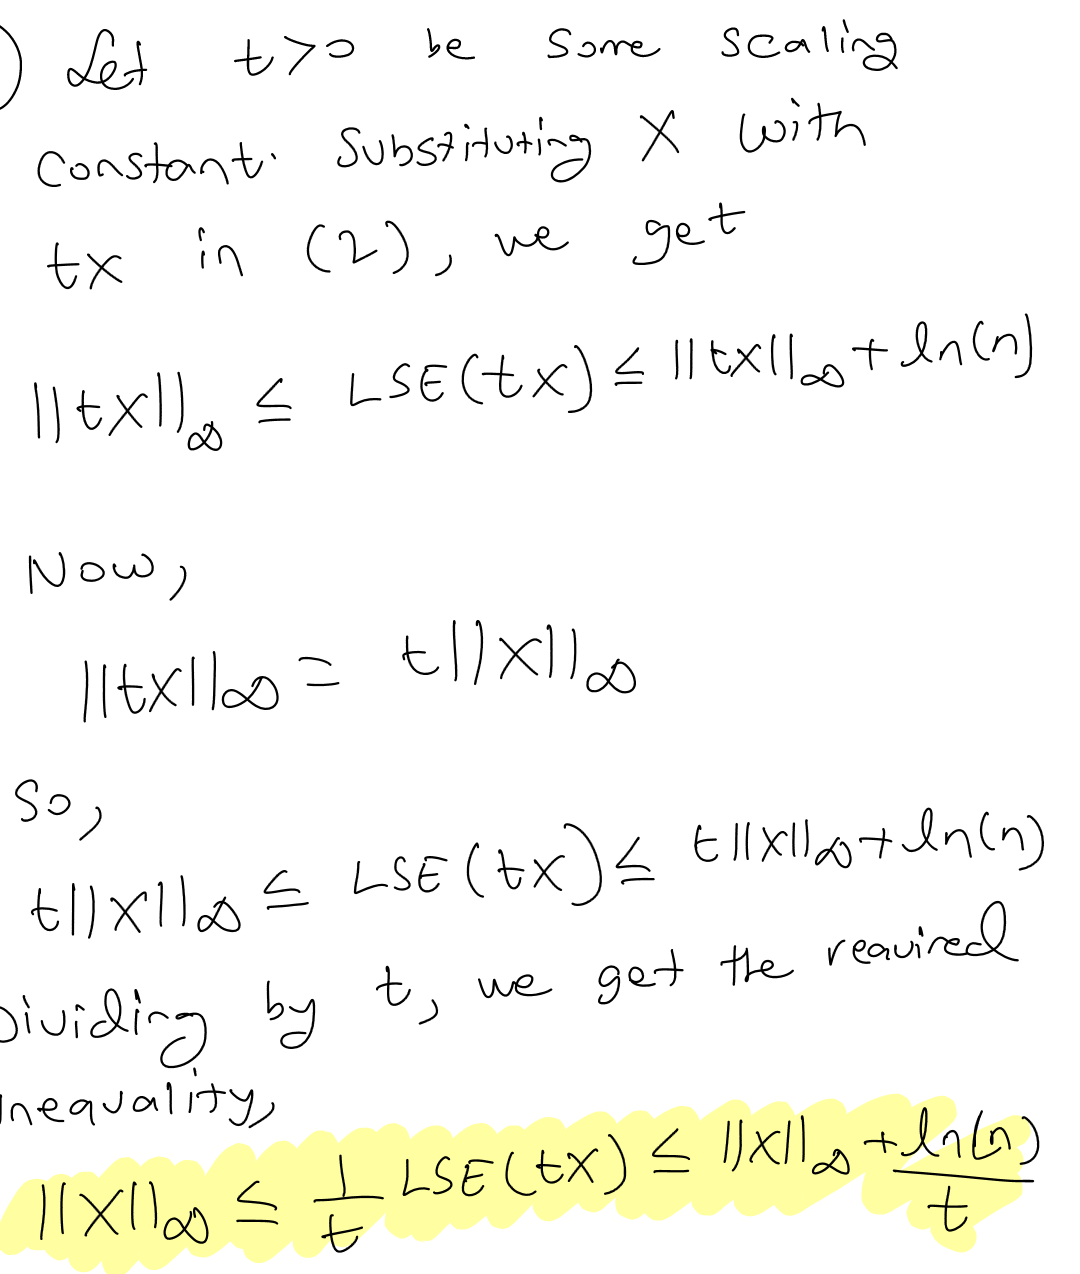 ) Let t>0 be some scaling
constant. Substituting X with
tx in (2), we get
||tx||∞ ≤ LSE(tx) ≤ ||tx||∞ + ln(n)
Now,
||tx||∞ = t||x||∞
So,
t||x||∞ ≤ LSE(tx) ≤ t||x||∞ + ln(n)
Dividing by t, we get the required
inequality,
||x||∞ ≤ 1/t LSE(tx) ≤ ||x||∞ + ln(n)/t